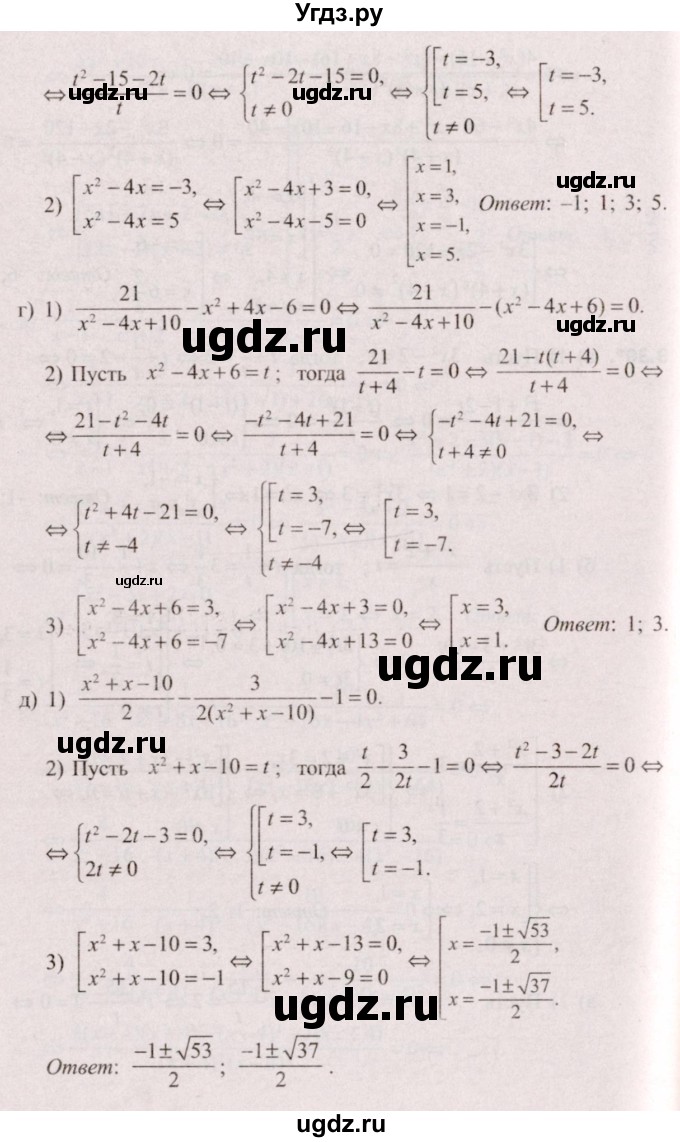 Угдз.ру
⇔ (t² – 15 – 2t)/t = 0 ⇔ { t² – 2t – 15 = 0, t ≠ 0 ⇔ { [ t = –3, t = 5, t ≠ 0 ⇔ [ t = –3, t = 5.
ugdz.ru ugdz.ru ugdz.ru
2) [ x² – 4x = –3, x² – 4x = 5 ⇔ [ x² – 4x + 3 = 0, x² – 4x – 5 = 0 ⇔ [ x = 1, x = 3, x = –1, x = 5. Ответ: –1; 1; 3; 5.
г) 1) 21/(x² – 4x + 10) – x² + 4x – 6 = 0 ⇔ 21/(x² – 4x + 10) – (x² – 4x + 6) = 0.
ugdz.ru ugdz.ru
2) Пусть x² – 4x + 6 = t; тогда 21/(t + 4) – t = 0 ⇔ (21 – t(t + 4))/(t + 4) = 0 ⇔
⇔ (21 – t² – 4t)/(t + 4) = 0 ⇔ (–t² – 4t + 21)/(t + 4) = 0 ⇔ { –t² – 4t + 21 = 0, t + 4 ≠ 0 ⇔
⇔ { t² + 4t – 21 = 0, t ≠ –4 ⇔ { [ t = 3, t = –7, t ≠ –4 ⇔ [ t = 3, t = –7.
ugdz.ru
3) [ x² – 4x + 6 = 3, x² – 4x + 6 = –7 ⇔ [ x² – 4x + 3 = 0, x² – 4x + 13 = 0 ⇔ [ x = 3, x = 1. Ответ: 1; 3.
ugdz.ru
д) 1) (x² + x – 10)/2 – 3/(2(x² + x – 10)) – 1 = 0.
ugdz.ru
2) Пусть x² + x – 10 = t; тогда t/2 – 3/(2t) – 1 = 0 ⇔ (t² – 3 – 2t)/(2t) = 0 ⇔
⇔ { t² – 2t – 3 = 0, 2t ≠ 0 ⇔ { [ t = 3, t = –1, t ≠ 0 ⇔ [ t = 3, t = –1.
3) [ x² + x – 10 = 3, x² + x – 10 = –1 ⇔ [ x² + x – 13 = 0, x² + x – 9 = 0 ⇔ [ x = (–1 ± √53)/2, x = (–1 ± √37)/2.
ugdz.ru
Ответ: (–1 ± √53)/2; (–1 ± √37)/2.
ugdz.ru